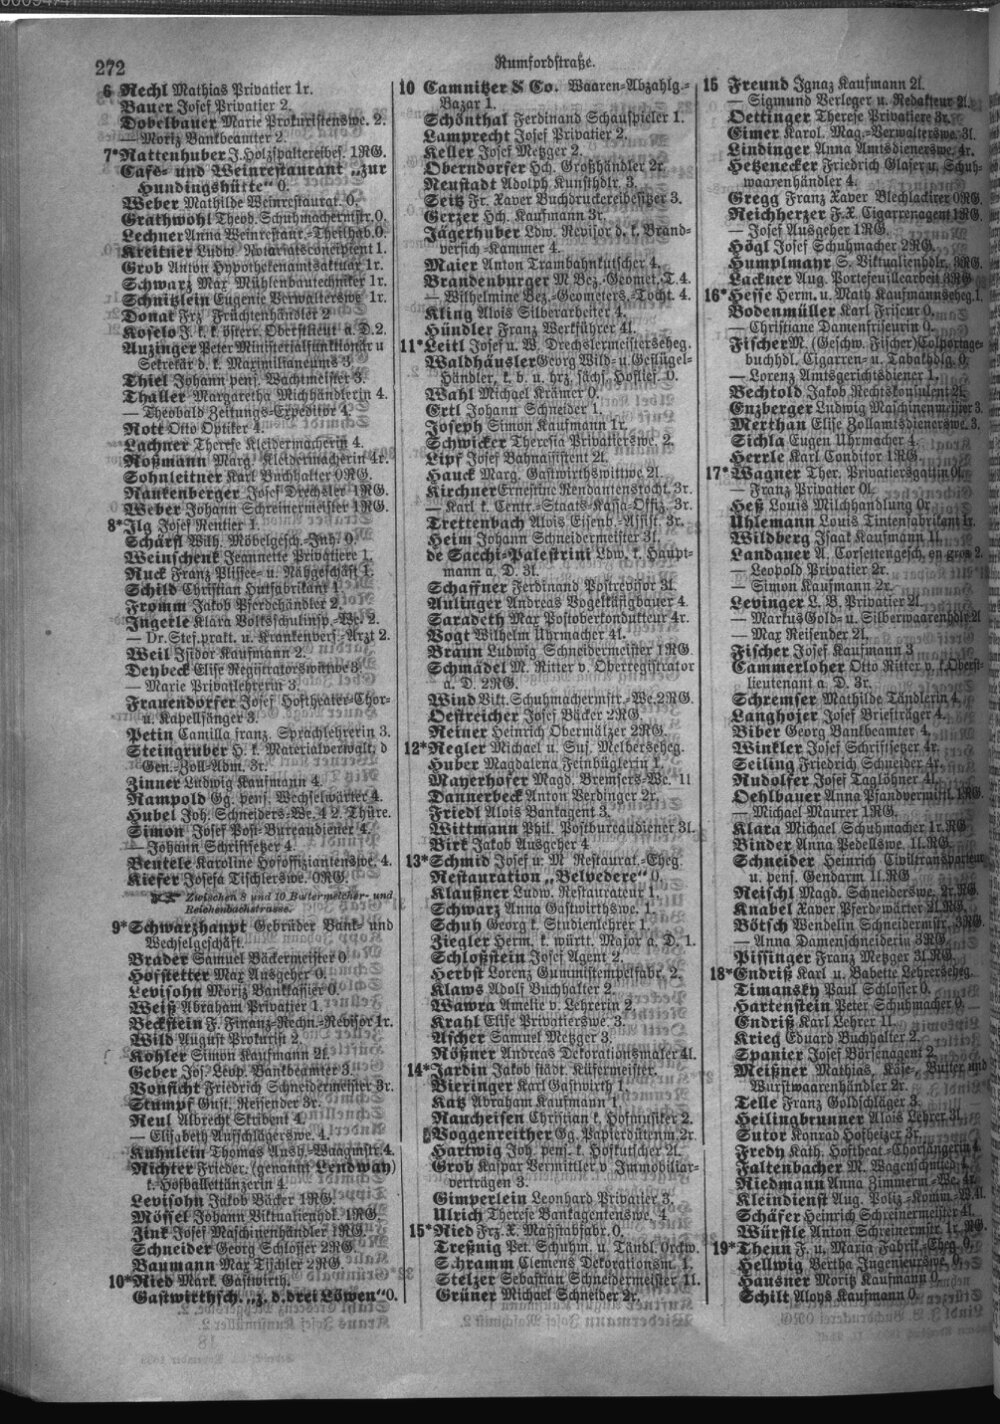 272
Rumfordstraße.
6 Rechl Mathias Privatier 1r.
Bauer Josef Privatier 2.
Dobelbauer Marie Prokuristenswe. 2.
— Moriz Bankbeamter 2.
7*Rattenhuber J. Holzspaltereibes. 1RG.
Café- und Weinrestaurant „zur
Hundingshütte“ 0.
Weber Mathilde Weinrestaurat. 0.
Grathwohl Theod. Schuhmachermstr. 0.
Lechner Anna Weinrestaur.-Theilhab. 0.
Kreitner Ludw. Notariatsconcipient 1.
Grob Anton Hypothekenamtsaktuar 1r.
Schwarz Max Mühlenbautechniker 1r.
Schnitzlein Eugenie Verwalterswe 1r.
Donat Frz Früchtenhändler 2
Koselo J. k. k. österr. Oberstlieut a. D. 2.
Anzinger Peter Ministerialfunktionär u
Sekretär d. k. Maximilianeums 3
Thiel Johann pens. Wachtmeister 3.
Thaller Margaretha Milchhändlerin 4.
— Theobald Zeitungs-Expeditor 4.
Rott Otto Optiker 4.
Lachner Therese Kleidermacherin 4.
Roßmann Marg. Kleidermacherin 4r.
Sohnleitner Karl Buchhalter 0RG.
Rankenberger Josef Drechsler 1RG.
Weber Johann Schreinermeister 1RG.
8*Ilg Josef Rentier 1.
Schärfl Wilh. Möbelgesch.-Inh. 0.
Weinschenk Jeannette Privatiere 1.
Ruck Franz Plissee- u. Nähgeschäft 1.
Schild Christian Hutfabrikant 1.
Fromm Jakob Pferdehändler 2.
Ingerle Klara Volksschulinsp.-We. 2.
— Dr. Stef. prakt. u. Krankenvers.-Arzt 2.
Weil Isidor Kaufmann 2.
Deybeck Elise Registratorswittwe 3.
— Marie Privatlehrerin 3.
Frauendorfer Josef Hoftheater-Chor-
u. Kapellsänger 3.
Petin Camilla franz. Sprachlehrerin 3.
Steingruber H. k. Materialverwalt. d
Gen.-Zoll-Adm. 3r.
Zinner Ludwig Kaufmann 4.
Rampold Gg. pens. Wechselwärter 4.
Hubel Joh. Schneiders-We. 4 2. Thüre.
Simon Josef Post-Bureaudiener 4.
— Johann Schriftsetzer 4.
Bentele Karoline Hofoffiziantenswe. 4.
Kiefer Josefa Tischlerswe. 0RG.
Zwischen 8 und 10 Buttermelcher- und
Reichenbachstrasse.
9*Schwarzhaupt Gebrüder Bank- und
Wechselgeschäft.
Brader Samuel Bäckermeister 0
Hofstetter Max Ausgeher 0.
Levisohn Moriz Bankkassier 0.
Weiß Abraham Privatier 1.
Beckstein F. Finanz-Rechn.-Revisor 1r.
Wild August Prokurist 2.
Kohler Simon Kaufmann 2l.
Geber Jos. Leop. Bankbeamter 3.
Vonficht Friedrich Schneidermeister 3r.
Stumpf Gust. Reisender 3r.
Reul Albrecht Skribent 4.
— Elisabeth Aufschlägerswe. 4.
Kuhnlein Thomas Aush.-Waagmstr. 4.
Richter Frieder. (genannt Lendway)
k. Hofballettänzerin 4.
Levisohn Jakob Bäcker 1RG.
Mössel Johann Viktualienhdl. 1RG.
Zink Josef Maschinenhändler 1RG.
Schneider Georg Schlosser 2RG.
Baumann Max Tischler 2RG.
10*Ried Mark. Gastwirth.
Gastwirthsch. „z. d. drei Löwen“ 0.
10 Camnitzer & Co. Waaren-Abzahlg.-
Bazar 1.
Schönthal Ferdinand Schauspieler 1.
Lamprecht Josef Privatier 2.
Keller Josef Metzger 2.
Oberndorfer Hch. Großhändler 2r.
Neustadt Adolph Kunsthdlr. 3.
Seitz Fr. Xaver Buchdruckereibesitzer 3.
Gerzer Hch. Kaufmann 3r.
Jägerhuber Ldw. Revisor d. k. Brand-
versich.-Kammer 4.
Maier Anton Trambahnkutscher 4.
Brandenburger M Bez.-Geomet.-T. 4.
— Wilhelmine Bez.-Geometers.-Tocht. 4.
Kling Alois Silberarbeiter 4.
Hündler Franz Werkführer 4l.
11*Leitl Josef u. W. Drechslermeisterseheg.
Waldhäusler Georg Wild- u. Geflügel-
Händler, k. b. u. hrz. sächs. Hoflief. 0.
Wahl Michael Krämer 0.
Ertl Johann Schneider 1.
Joseph Simon Kaufmann 1r.
Schwicker Theresia Privatierswe. 2.
Lipf Josef Bahnassistent 2l.
Hauck Marg. Gastwirthswittwe 2l.
Kirchner Ernestine Rendantenstocht. 3r.
— Karl k. Centr.-Staats-Kassa-Offiz. 3r.
Trettenbach Alois Eisenb.-Assist. 3r.
Heim Johann Schneidermeister 3l.
de Sacchi-Palestrini Ldw. k. Haupt-
mann a. D. 3l.
Schaffner Ferdinand Postrevisor 3l.
Aulinger Andreas Vogelkäfigbauer 4.
Saradeth Max Postoberkondukteur 4r.
Vogt Wilhelm Uhrmacher 4l.
Braun Ludwig Schneidermeister 1RG.
Schmädel M. Ritter v. Oberregistrator
a. D. 2RG.
Wind Vikt. Schuhmachermstr.-We. 2RG.
Oestreicher Josef Bäcker 2RG.
Reiner Heinrich Obermälzer 2RG.
12*Regler Michael u. Sus. Melberseheg.
Huber Magdalena Feinbüglerin 1.
Mayerhofer Magd. Bremsers-We. 1l
Dannerbeck Anton Verdinger 2r.
Friedl Alois Bankagent 3.
Wittmann Phil. Postbureaudiener 3l.
Birk Jakob Ausgeher 4
13*Schmid Josef u. M Restaurat.-Eheg.
Restauration „Belvedere“ 0.
Klaußner Ludw. Restaurateur 1.
Schwarz Anna Gastwirthswe. 1.
Schuh Georg k. Studienlehrer 1.
Ziegler Herm. k. württ. Major a. D. 1.
Schloßstein Josef Agent 2.
Herbst Lorenz Gummistempelfabr. 2.
Klaws Adolf Buchhalter 2.
Wawra Amelie v. Lehrerin 2.
Krahl Elise Privatierswe. 3.
Ascher Samuel Metzger 3.
Rößner Andreas Dekorationsmaler 4l.
14*Jardin Jakob städt. Küfermeister.
Bieringer Karl Gastwirth 1.
Katz Abraham Kaufmann 1.
Raucheisen Christian k. Hofmusiker 2.
Voggenreither Gg. Papierdütenm. 2r.
Hartwig Joh. pens. k. Hofkutscher 2l.
Grob Kaspar Vermittler v. Immobiliar-
verträgen 3.
Gimperlein Leonhard Privatier 3.
Ulrich Therese Bankagentenswe. 4
15*Ried Frz. X. Maßstabfabr. 0.
Treßnig Pet. Schuhm. u. Tändl. Orckw.
Schramm Clemens Dekorationsm. 1.
Stelzer Sebastian Schneidermeister 1l.
Grüner Michael Schneider 2r.
15 Freund Ignaz Kaufmann 2l.
— Sigmund Verleger u. Redakteur 2l.
Oettinger Therese Privatiere 3r.
Eimer Karol. Mag.-Verwalterswe. 3l.
Lindinger Anna Amtsdienerswe. 4r.
Hetzenecker Friedrich Glaser u. Schuh-
waarenhändler 4.
Gregg Franz Xaver Blechlackirer 0RG.
Reichherzer F. X. Cigarrenagent 1RG.
— Josef Ausgeher 1RG.
Högl Josef Schuhmacher 2RG.
Humplmayr S. Viktualienhdlr. 3RG.
Lackner Aug. Portefeuillearbeit 3RG.
16*Hesse Herm. u. Math Kaufmannseheg. 1.
Bodenmüller Karl Friseur 0.
— Christiane Damenfriseurin 0.
Fischer M. (Geschw. Fischer) Colportage-
buchhdl. Cigarren- u. Tabakhdlg. 0.
— Lorenz Amtsgerichtsdiener 1.
Bechtold Jakob Rechtskonsulent 2l.
Enzberger Ludwig Maschinenmeister 3.
Merthan Elise Zollamtsdienerswe. 3.
Sichla Eugen Uhrmacher 4.
Herrle Karl Conditor 1RG.
17*Wagner Ther. Privatiersgattin 0l.
— Franz Privatier 0l.
Heß Louis Milchhandlung 0r.
Uhlemann Louis Tintenfabrikant 1r.
Wildberg Isaak Kaufmann 1l.
Landauer A. Corsettengesch. en gros 2.
— Leopold Privatier 2r.
— Simon Kaufmann 2r.
Levinger L. B. Privatier 2l.
— Markus Gold- u. Silberwaarenhdlr. 2l
— Max Reisender 2l.
Fischer Josef Kaufmann 3
Cammerloher Otto Ritter v. k. Oberst-
lieutenant a. D. 3r.
Schremser Mathilde Tändlerin 4.
Langhojer Josef Briefträger 4.
Biber Georg Bankbeamter 4.
Winkler Josef Schriftsetzer 4r.
Seiling Friedrich Schneider 4r.
Rudolfer Josef Taglöhner 4l.
Oehlbauer Anna Pfandvermittl. 1RG.
— Michael Maurer 1RG.
Klara Michael Schuhmacher 1r. RG.
Binder Anna Pedellswe. 1l. RG.
Schneider Heinrich Civiltransporteur
u. pens. Gendarm 1l. RG.
Reischl Magd. Schneiderswe. 2r. RG.
Knabel Xaver Pferdewärter 2l. RG.
Bötsch Wendelin Schneidermstr. 3RG.
— Anna Damenschneiderin 3RG.
Pissinger Franz Metzger 3l. RG.
18*Endriß Karl u. Babette Lehrerseheg.
Timansky Paul Schlosser 0.
Hartenstein Peter Schuhmacher 0.
Endriß Karl Lehrer 1l.
Krieg Eduard Buchhalter 2.
Spanier Josef Börsenagent 2.
Meißner Mathias, Käse-, Butter und
Wurstwaarenhändler 2r.
Telle Franz Goldschläger 3.
Heilingbrunner Alois Lehrer 3l.
Sutor Konrad Hofheizer 3r.
Fredy Kath. Hoftheat.-Chorsängerin 4.
Faltenbacher M. Wagenschmied 4.
Riedmann Anna Zimmerm.-We. 4r.
Kleindienst Aug. Poliz.-Komm.-W. 4l.
Schäfer Heinrich Schreinermeister 4l.
Würstle Anton Schreinermstr. 1r. RG.
19*Thenn F. u. Maria Fabrik.-Eheg. 0.
Hellwig Bertha Ingenieurswe. 0.
Hausner Moritz Kaufmann 0.
Schilt Aloys Kaufmann 0.